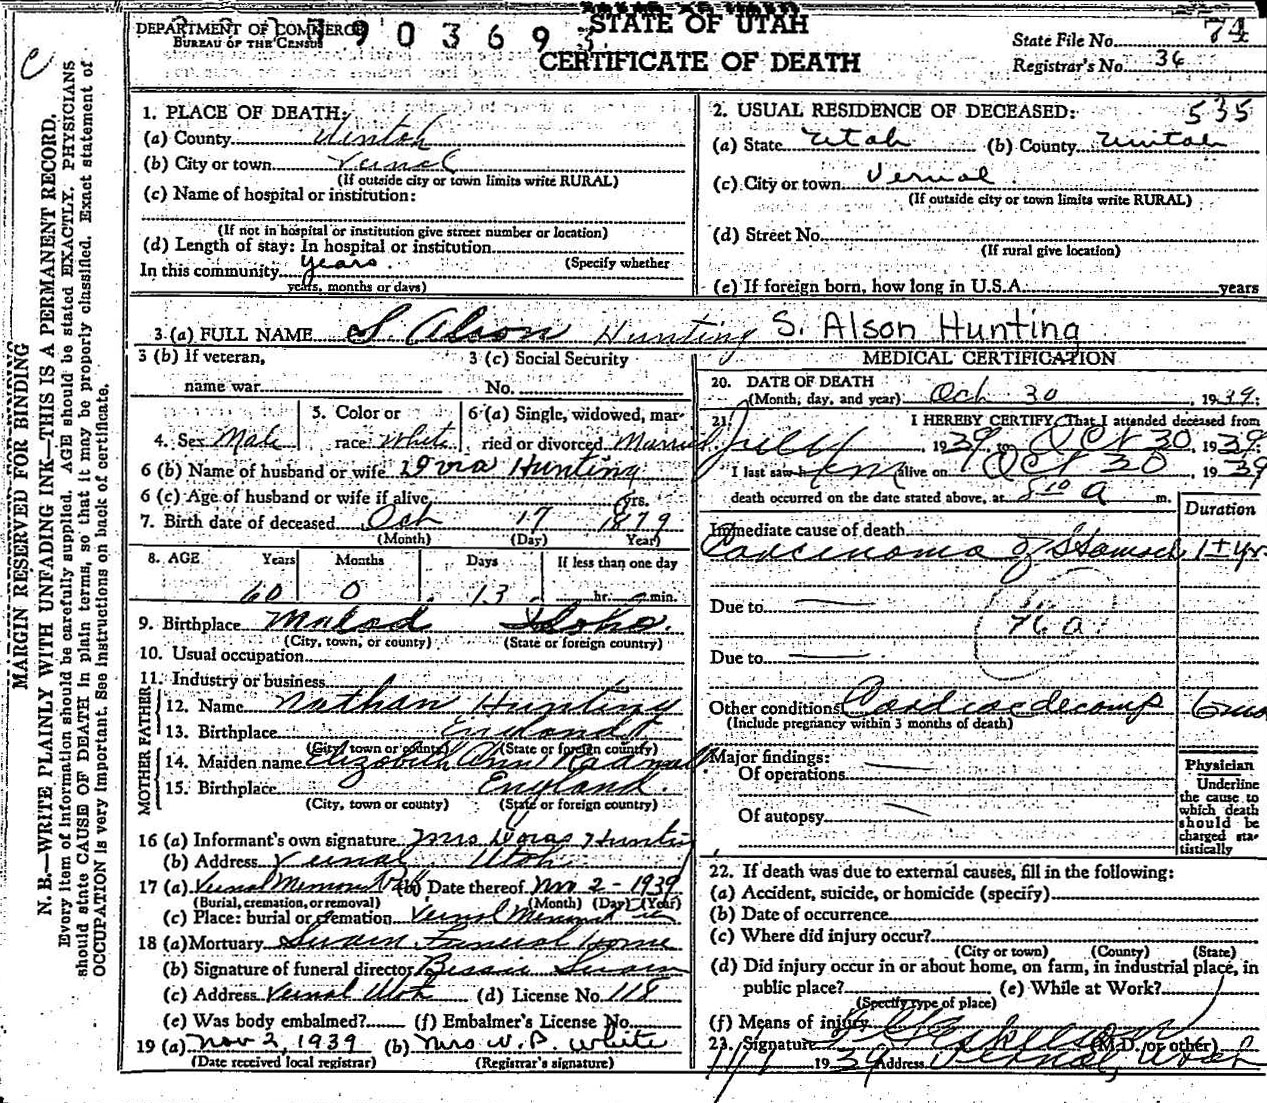 DEPARTMENT OF COMMERCE
BUREAU OF THE CENSUS
390369
STATE OF UTAH
CERTIFICATE OF DEATH
State File No. 74
Registrar's No. 36
MARGIN RESERVED FOR BINDING
N. B.—WRITE PLAINLY WITH UNFADING INK—THIS IS A PERMANENT RECORD.
Every item of information should be carefully supplied. AGE should be stated EXACTLY. PHYSICIANS
should state CAUSE OF DEATH in plain terms, so that it may be properly classified. Exact statement of
OCCUPATION is very important. See instructions on back of certificate.
1. PLACE OF DEATH:
(a) County Uintah
(b) City or town Vernal
(If outside city or town limits write RURAL)
(c) Name of hospital or institution:
(If not in hospital or institution give street number or location)
(d) Length of stay: In hospital or institution
(Specify whether
In this community years.
years, months or days)
2. USUAL RESIDENCE OF DECEASED: 535
(a) State Utah (b) County Uintah
(c) City or town Vernal
(If outside city or town limits write RURAL)
(d) Street No.
(If rural give location)
(e) If foreign born, how long in U.S.A. years
3 (a) FULL NAME S. Alson Hunting S. Alson Hunting
3 (b) If veteran,
name war
3 (c) Social Security
No.
4. Sex Male
5. Color or
race White
6 (a) Single, widowed, mar-
ried or divorced Married
6 (b) Name of husband or wife Hunting
6 (c) Age of husband or wife if alive yrs.
7. Birth date of deceased Oct 17 1879
(Month) (Day) Year)
8. AGE Years Months Days If less than one day
60 0 13 hr. min.
9. Birthplace Malad Idaho.
(City, town, or county) (State or foreign country)
10. Usual occupation
11. Industry or business
FATHER
12. Name Nathan Hunting
13. Birthplace England
(City town or county) (State or foreign country)
MOTHER
14. Maiden name Elizabeth Ann
15. Birthplace England.
(City, town or county) (State or foreign country)
16 (a) Informant's own signature Mrs Hunting
(b) Address Vernal Utah
17 (a) Vernal Memorial (b) Date thereof Nov 2 - 1939
(Burial, cremation, or removal) (Month) (Day) (Year)
(c) Place: burial or cremation Vernal
18 (a) Mortuary Swain Funeral Home
(b) Signature of funeral director Swain
(c) Address Vernal Utah (d) License No. 118
(e) Was body embalmed? (f) Embalmer's License No.
19 (a) Nov 2, 1939 (b) Mrs W. P. White
(Date received local registrar) (Registrar's signature)
MEDICAL CERTIFICATION
20. DATE OF DEATH
(Month, day, and year) Oct 30 , 1939.
21. I HEREBY CERTIFY, That I attended deceased from
July , 1939, to Oct 30, 1939
I last saw him alive on Oct 30 , 1939
death occurred on the date stated above, at 5 10 a m.
Duration
Immediate cause of death
Carcinoma of Stomach 1± yr.
Due to —
76 a.
Due to —
Other conditions Cardiac decomp 6 mo
(Include pregnancy within 3 months of death)
Major findings:
Of operations —
Of autopsy —
Physician
Underline
the cause to
which death
should be
charged sta-
tistically
22. If death was due to external causes, fill in the following:
(a) Accident, suicide, or homicide (specify)
(b) Date of occurrence
(c) Where did injury occur?
(City or town) (County) (State)
(d) Did injury occur in or about home, on farm, in industrial place, in
public place? (e) While at Work?
(Specify type of place)
(f) Means of injury
23. Signature (M.D. or other)
11/1 1939 Address Vernal, Utah